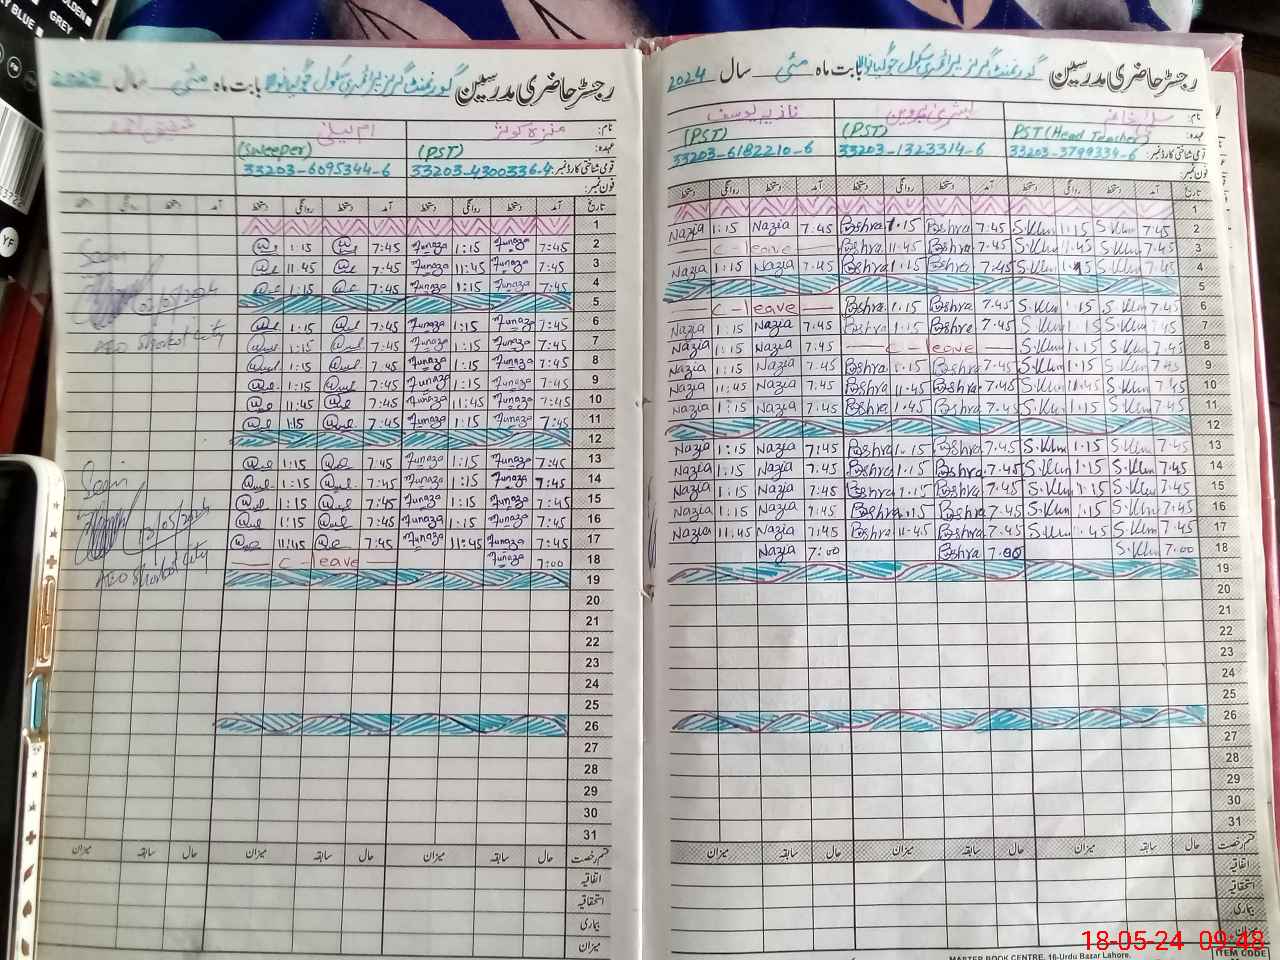 رجسٹر حاضری مدرسین گورنمنٹ گرلز پرائمری سکول بابت ماہ مئی سال 2024
نام:
عہدہ: PST (Head Teacher) (PST) (PST)
قومی شناختی کارڈ نمبر: 33203-3799334-6 33203-1323314-6 33203-6182210-6
فون نمبر:
تاریخ آمد دستخط روانگی دستخط آمد دستخط روانگی دستخط آمد دستخط روانگی دستخط
1
2 7:45 S.Klm 1:15 S.Klm 7.45 Bshra 1.15 Bshra 7:45 Nazia 1:15 Nazia
3 7.45 S.Klm 11.45 S.Klm 7.45 Bshra 11.45 Bshra C - leave
4 7.45 S.Klm 1.15 S.Klm 7.45 Bshra 1.15 Bshra 7.45 Nazia 1:15 Nazia
5
6 7.45 S.Klm 1.15 S.Klm 7.45 Bshra 1.15 Bshra C - leave
7 7.45 S.Klm 1.15 S.Klm 7.45 Bshra 1.15 Bshra 7:45 Nazia 1:15 Nazia
8 7.45 S.Klm 1.15 S.Klm C - leave 7:45 Nazia 1:15 Nazia
9 7.45 S.Klm 1.15 S.Klm 7.45 Bshra 1.15 Bshra 7.45 Nazia 1:15 Nazia
10 7.45 S.Klm 11.45 S.Klm 7.45 Bshra 11.45 Bshra 7:45 Nazia 11:45 Nazia
11 7.45 S.Klm 1.15 S.Klm 7.45 Bshra 1.45 Bshra 7:45 Nazia 1:15 Nazia
12
13 7.45 S.Klm 1.15 S.Klm 7.45 Bshra 1.15 Bshra 7:45 Nazia 1:15 Nazia
14 7.45 S.Klm 1.15 S.Klm 7.45 Bshra 1.15 Bshra 7:45 Nazia 1:15 Nazia
15 7.45 S.Klm 1.15 S.Klm 7.45 Bshra 1.15 Bshra 7:45 Nazia 1:15 Nazia
16 7.45 S.Klm 1.15 S.Klm 7.45 Bshra 1.15 Bshra 7:45 Nazia 1:15 Nazia
17 7.45 S.Klm 11.45 S.Klm 7.45 Bshra 11.45 Bshra 7:45 Nazia 11:45 Nazia
18 7.00 S.Klm 7.00 Bshra 7:00 Nazia
19
20
21
22
23
24
25
26
27
28
29
30
31
قسم رخصت حال سابقہ میزان حال سابقہ میزان حال سابقہ میزان
اتفاقیہ
استحقاقیہ
بیماری
میزان
MASTER BOOK CENTRE, 16-Urdu Bazar Lahore.
ITEM CODE
رجسٹر حاضری مدرسین گورنمنٹ گرلز پرائمری سکول بابت ماہ مئی سال 2024
نام:
عہدہ: (PST) (Sweeper)
قومی شناختی کارڈ نمبر: 33203-4300336-4 33203-6095344-6
فون نمبر:
تاریخ آمد دستخط روانگی دستخط آمد دستخط روانگی دستخط
1
2 7:45 Munaza 1:15 Munaza 7:45 1:15
3 7:45 Munaza 11:45 Munaza 7:45 11:45
4 7:45 Munaza 1:15 Munaza 7:45 1:15
5
6 7:45 Munaza 1:15 Munaza 7:45 1:15
7 7:45 Munaza 1:15 Munaza 7:45 1:15
8 7:45 Munaza 1:15 Munaza 7:45 1:15
9 7:45 Munaza 1:15 Munaza 7:45 1:15
10 7:45 Munaza 11:45 Munaza 7:45 11:45
11 7:45 Munaza 1:15 Munaza 7:45 1:15
12
13 7:45 Munaza 1:15 Munaza 7:45 1:15
14 7:45 Munaza 1:15 Munaza 7:45 1:15
15 7:45 Munaza 1:15 Munaza 7:45 1:15
16 7:45 Munaza 1:15 Munaza 7:45 1:15
17 7:45 Munaza 11:45 Munaza 7:45 11:45
18 7:00 Munaza C - leave
19
20
21
22
23
24
25
26
27
28
29
30
31
قسم رخصت حال سابقہ میزان حال سابقہ میزان حال سابقہ میزان
اتفاقیہ
استحقاقیہ
بیماری
میزان
Seen
AEO Shorkot City
Seen
13/05/2024
AEO Shorkot City
GREY
YF
18-05-24 09:48